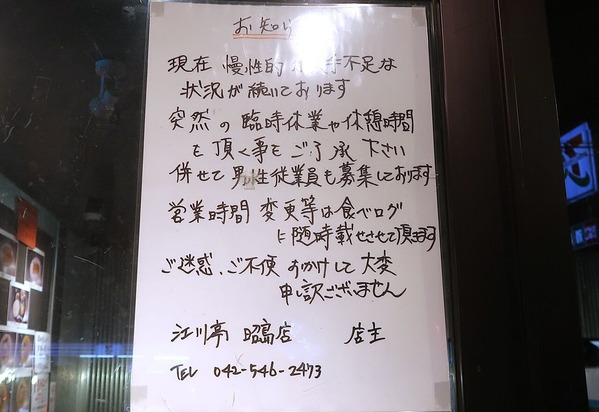 お知ら
現在 慢性的 手不足な
状況が続いております
突然の臨時休業や休憩時間
を頂く事をご了承下さい
併せて男性従業員も募集しております
営業時間 変更等は食べログ
に随時載せさせて頂ます
ご迷惑、ご不便おかけして大変
申し訳ございません
江川亭 昭島店 店主
TEL 042-546-2473